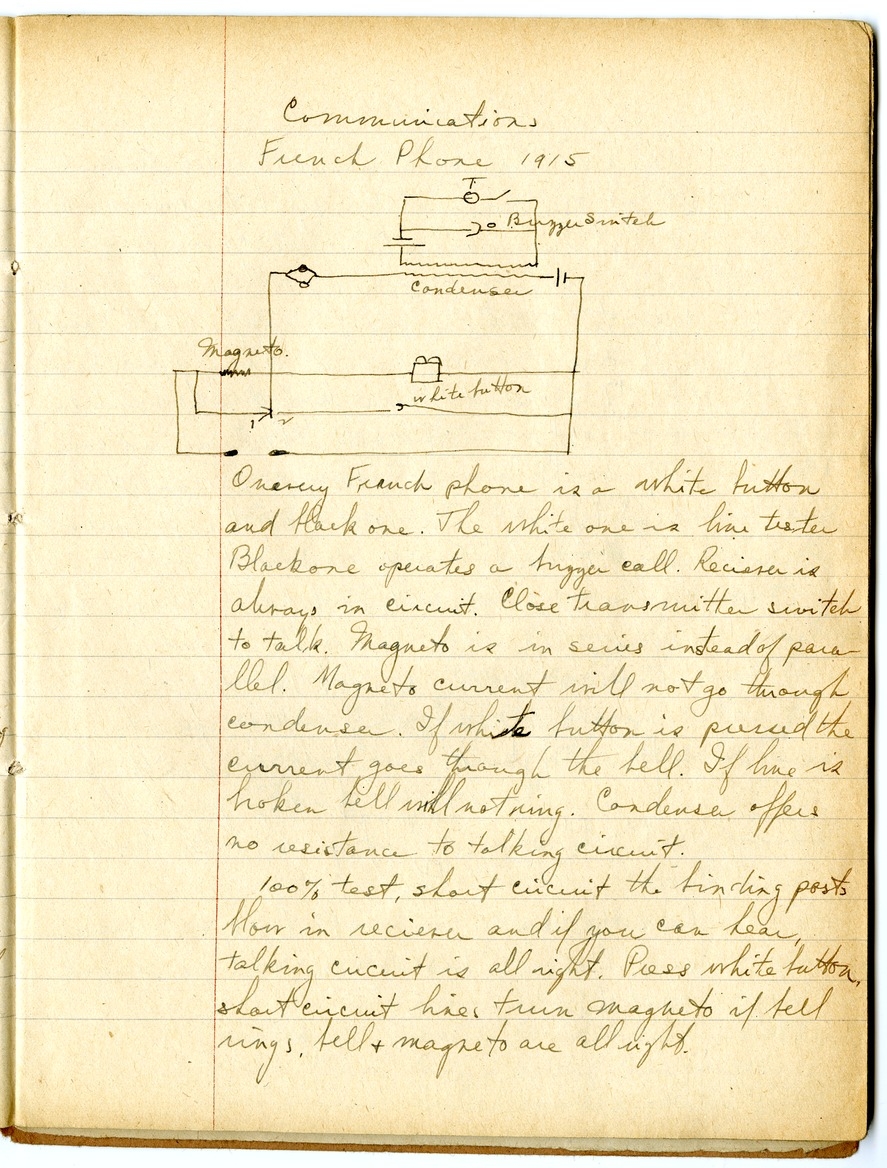 Communications
French Phone 1915
T
Buzzer Switch
Condenser
Magneto.
white button
1 2
On every French phone is a white button
and black one. The white one is line tester
Black one operates a buzzer call. Reciever is
always in circuit. Close transmitter switch
to talk. Magneto is in series instead of para-
llel. Magneto current will not go through
condenser. If white button is pressed the
current goes through the bell. If line is
broken bell will not ring. Condenser offers
no resistance to talking circuit.
100% test, short circuit the binding posts
blow in reciever and if you can hear,
talking circuit is all right. Press white button,
short circuit lines turn magneto if bell
rings, bell + magneto are all right.